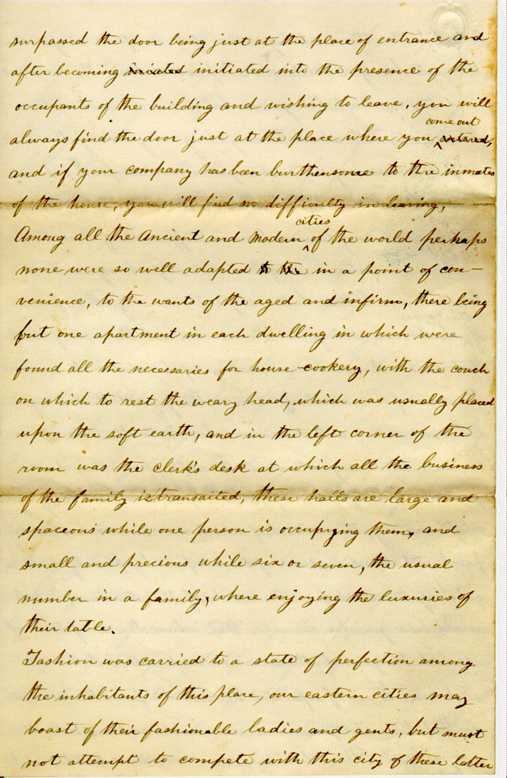 surpassed the door being just at the place of entrance and
after becoming initiated into the presence of the
occupants of the building and wishing to leave, you will
come out
always find the door just at the place where you entered,
and if your company has been burthensome to the inmates
of the house, you will find no difficulty in leaving,
cities
Among all the Ancient and Modern of the world perhaps
none were so well adapted in a point of con-
venience, to the wants of the aged and infirm, there being
but one apartment in each dwelling in which were
found all the necessaries for house-cookery, with the couch
on which to rest the weary head, which was usually placed
upon the soft earth, and in the left corner of the
room was the clerk's desk at which all the business
of the family is transacted, these halls are large and
spaceous while one person is occupying them, and
small and precious while six or seven, the usual
number in a family, where enjoying the luxuries of
their table.
Fashion was carried to a state of perfection among
the inhabitants of this place, our eastern cities may
boast of their fashionable ladies and gents, but must
not attempt to compete with this city of these latter